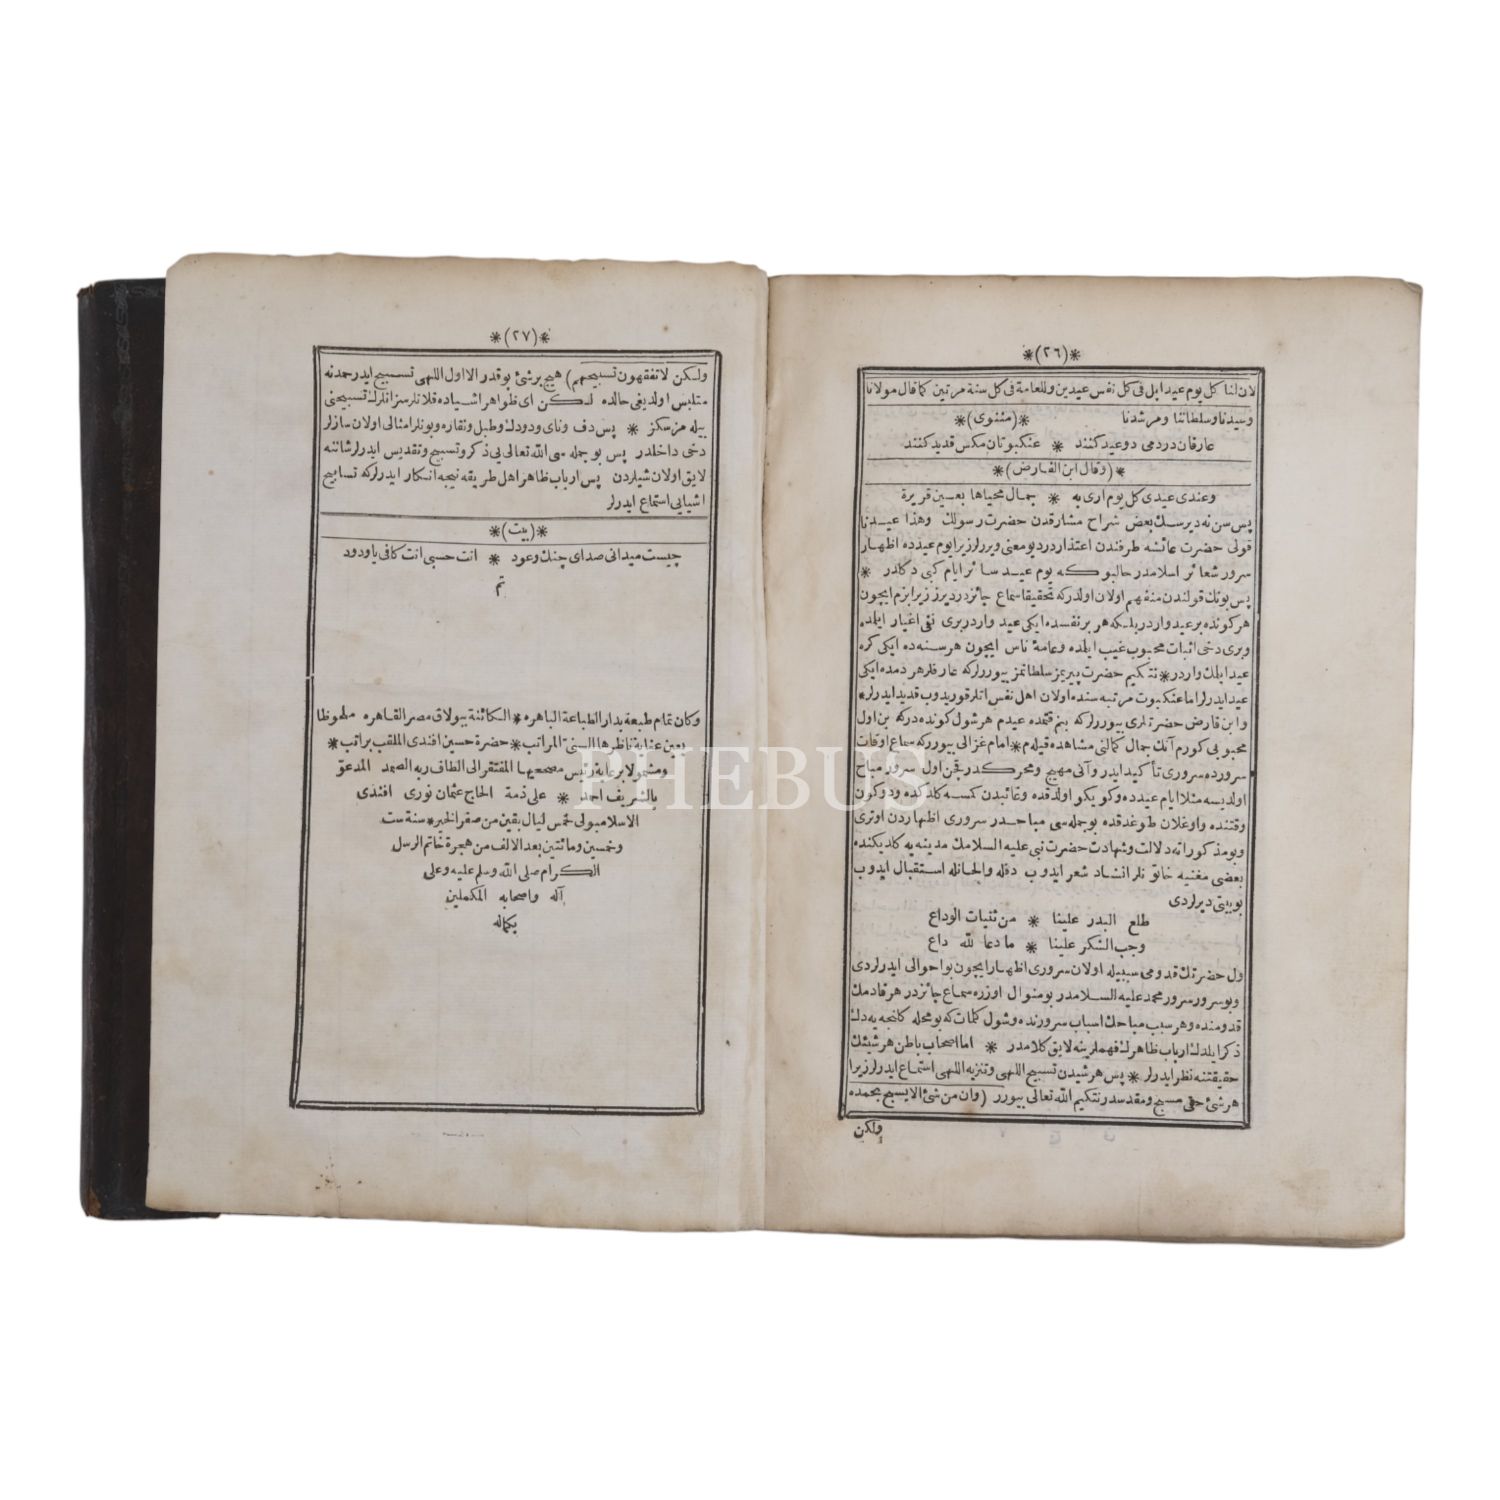 *(٢٦)*
لان لنا كل يوم عيد ابل فى كل نفس عيدين وللعامة فى كل سنة مرتين كما قال مولانا
وسيدنا وسلطاننا ومرشدنا *(مثنوى)*
عارفان دردمى دو عيد كنند * عنكبوتان مكس قديد كنند
*(وقال ابن الفارض)*
وعندى عيدى كل يوم ارى به * جمال محياها بعين قريرة
پس سن نه ديرسك بعض شراح مشارقدن حضرت رسولك وهذا عيدنا
قولى حضرت عائشه طرفندن اعتذاردر ديو معنى ويررلر زيرا يوم عيدده اظهار
سرور شعائر اسلامدر حالبوكه يوم عيد سائر ايام كبى دكلدر *
پس بونك قولندن منفهم اولان اولدركه تحقيقا سماع جائزدر ديرز زيرا بزم ايچون
هر كونده بر عيد واردر بلكه هر بر نفسده ايكى عيد واردر برى نفى اغيار ايلمه
وبرى دخى اثبات محبوب غيب ايلمه وعامۀ ناس ايچون هر سنه ده ايكى كره
عيد ايلمك واردر * نتكيم حضرت پيريمز سلطانمز بيوررلركه عارفلر هر دمده ايكى
عيد ايدرلر اما عنكبوت مرتبه سنده اولان اهل نفس انلر قوريدوب قديد ايدرلر *
وابن فارض حضرتلرى بيوررلركه بنم قتمده عيدم هر شول كونده دركه بن اول
محبوبى كورم آنك جمال كمالنى مشاهده قيله م * امام غزالى بيوررركه سماع اوقات
سرورده سرورى تأكيد ايدر وآنى مهيج ومحركدر قچن اول سرور مباح
اولديسه مثلا ايام عيدده وكويكو اولدقده وغائبدن كمسه كلدكده ودوكون
وقتنده واوغلان طوغدقده بو جمله سى مباحدر سرورى اظهاردن اوترى
وبو مذكوراته دلالت وشهادت حضرت نبى عليه السلامك مدينه يه كلديكنده
بعضى مغنيه خاتونلر انشاد شعر ايدوب دفله والحانله استقبال ايدوب
بو بيتى ديرلردى
طلع البدر علينا * من ثنيات الوداع
وجب الشكر علينا * ما دعا لله داع
ول حضرتك قدومى سببيله اولان سرورى اظهار ايچون بو احوالى ايدرلردى
وبو سرور سرور محمد عليه السلامدر بو منوال اوزره سماع جائزدر هر قادمك
قدومنده وهر سبب مباحك اسباب سرورنده وشول كلمات كه بو محله كلنجه يه دك
ذكر ايلدك ارباب ظاهرك فهملرينه لايق كلامدر * اما اصحاب باطن هر شيئك
حقيقتنه نظر ايدرلر * پس هر شيدن تسبيح اللهى وتنزيه اللهى استماع ايدرلر زيرا
هر شئ حقى مسبح ومقدسدر نتكيم الله تعالى بيورر (وان من شئ الا يسبح بحمده
ولكن
*(٢٧)*
ولكن لا تفقهون تسبيحهم) هيچ بر شئ يوقدر الا اول اللهى تسبيح ايدر حمدنه
متلبس اولديغى حالده لكن اى ظواهر اشياده قلانلر سز انلرك تسبيحنى
بيله مزسكز * پس دف وناى ودودك وطبل ونقاره وبونلر امثالى اولان سازلر
دخى داخلدر پس بو جمله سى الله تعالى يى ذكر وتسبيح وتقديس ايدرلر شاننه
لايق اولان شيلردن پس ارباب ظاهر اهل طريقه نيجه انكار ايدرلركه تسابيح
اشيايى استماع ايدرلر
*(بيت)*
چيست ميدانى صداى چنك وعود * انت حسبى انت كافى يا ودود
تم
وكان تمام طبعه بدار الطباعة الباهره * الكائنة ببولاق مصر القاهره ملحوظا
بعين عناية ناظرها السنى المراتب * حضرة حسين افندى الملقب براتب *
ومشمولا برعاية رئيس مصححيها المفتقر الى الطاف ربه الصمد المدعو
بالشريف احمد * على ذمة الحاج عثمان نورى افندى
الاسلامبولى لخمس ليال بقين من صفر الخير * سنة ست
وخمسين ومائتين بعد الالف من هجرة خاتم الرسل
الكرام صلى الله وسلم عليه وعلى
آله واصحابه المكملين
بكماله
PHEBUS